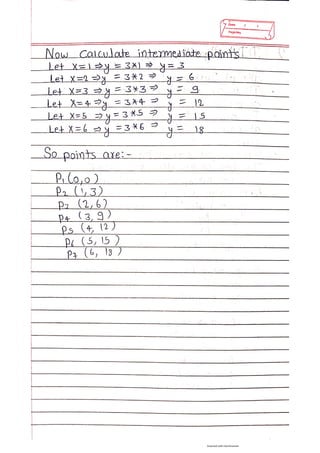 Date
Now Calculate intermediate points
Let x=1 ⇒ y = 3*1 ⇒ y = 3
Let x=2 ⇒ y = 3*2 ⇒ y = 6
Let x=3 ⇒ y = 3*3 ⇒ y = 9
Let x=4 ⇒ y = 3*4 ⇒ y = 12
Let x=5 ⇒ y = 3*5 ⇒ y = 15
Let x=6 ⇒ y = 3*6 ⇒ y = 18
So points are:-
P1 (0,0)
P2 (1,3)
P3 (2,6)
P4 (3,9)
P5 (4,12)
P6 (5,15)
P7 (6,18)